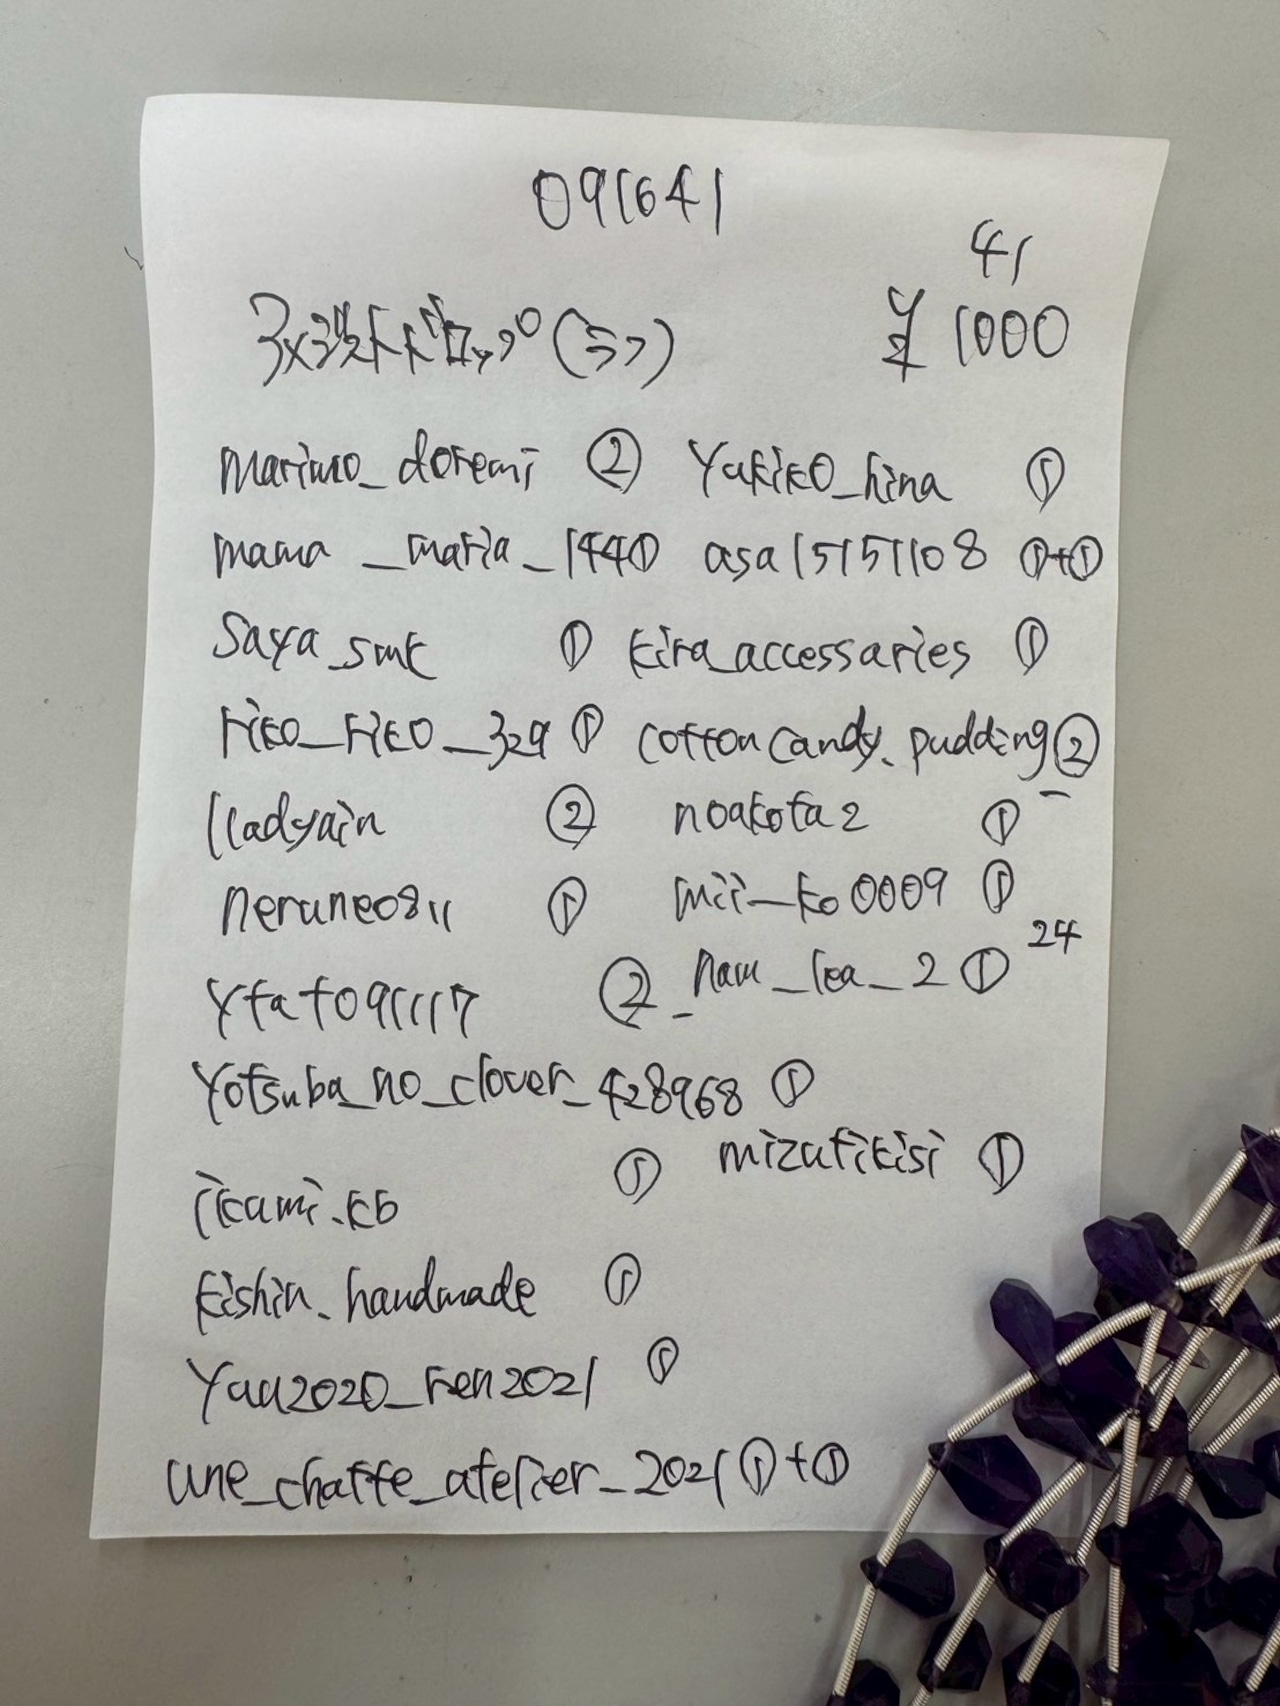 091641
41
¥1000
marimo_doremi ② yukiko_hina ①
mama_maria_144① asa15151108 ①+①
saya_smk ① kira_accessaries ①
riko_riko_329 ① cottoncandy.pudding②
lladyain ② noakota2 ①
nerune0811 ① mii_ko0009 ①
24
ytat091117 ② _nam_lea_2 ①
yotsuba_no_clover_428968 ①
ikumi.kb ① mizutikisi ①
kishin_handmade ①
yuu2020_ren2021 ①
une_chatte_atelier_2021①+①